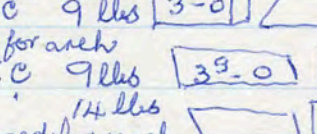 c 9 lbs 3-0
for arch
c 9 lbs 3⁹-0
14 lbs